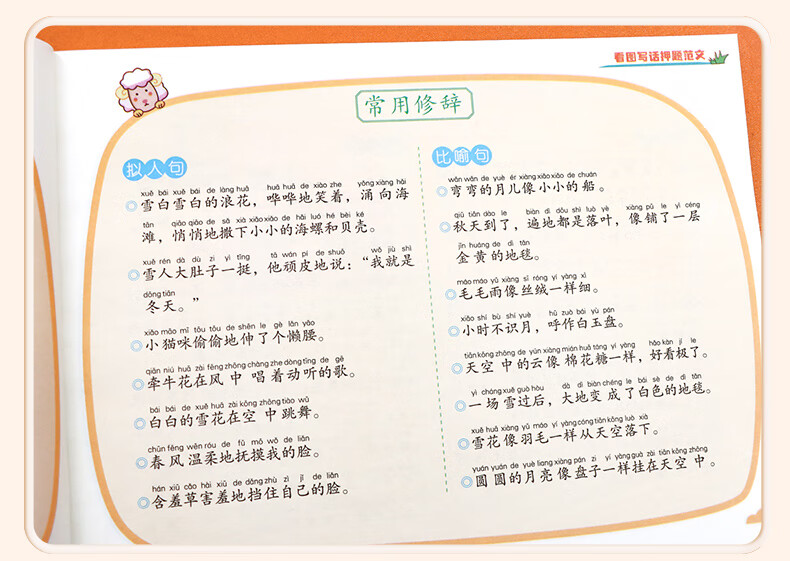 看图写话押题范文
常用修辞
拟人句
xuě bái xuě bái de làng huā huā huā de xiào zhe yǒng xiàng hǎi
雪白雪白的浪花，哗哗地笑着，涌向海
tān qiāo qiāo de sǎ xià xiǎo xiǎo de hǎi luó hé bèi ké
滩，悄悄地撒下小小的海螺和贝壳。
xuě rén dà dù zi yì tǐng tā wán pí de shuō wǒ jiù shì
雪人大肚子一挺，他顽皮地说：“我就是
dōng tiān
冬天。”
xiǎo māo mī tōu tōu de shēn le gè lǎn yāo
小猫咪偷偷地伸了个懒腰。
qiān niú huā zài fēng zhōng chàng zhe dòng tīng de gē
牵牛花在风中唱着动听的歌。
bái bái de xuě huā zài kōng zhōng tiào wǔ
白白的雪花在空中跳舞。
chūn fēng wēn róu de fǔ mō wǒ de liǎn
春风温柔地抚摸我的脸。
hán xiū cǎo hài xiū de dǎng zhù zì jǐ de liǎn
含羞草害羞地挡住自己的脸。
比喻句
wān wān de yuè ér xiàng xiǎo xiǎo de chuán
弯弯的月儿像小小的船。
qiū tiān dào le biàn dì dōu shì luò yè xiàng pū le yì céng
秋天到了，遍地都是落叶，像铺了一层
jīn huáng de dì tǎn
金黄的地毯。
máo máo yǔ xiàng sī róng yí yàng xì
毛毛雨像丝绒一样细。
xiǎo shí bù shí yuè hū zuò bái yù pán
小时不识月，呼作白玉盘。
tiān kōng zhōng de yún xiàng mián huā táng yí yàng hǎo kàn jí le
天空中的云像棉花糖一样，好看极了。
yì cháng xuě guò hòu dà dì biàn chéng le bái sè de dì tǎn
一场雪过后，大地变成了白色的地毯。
xuě huā xiàng yǔ máo yí yàng cóng tiān kōng luò xià
雪花像羽毛一样从天空落下。
yuán yuán de yuè liang xiàng pán zi yí yàng guà zài tiān kōng zhōng
圆圆的月亮像盘子一样挂在天空中。